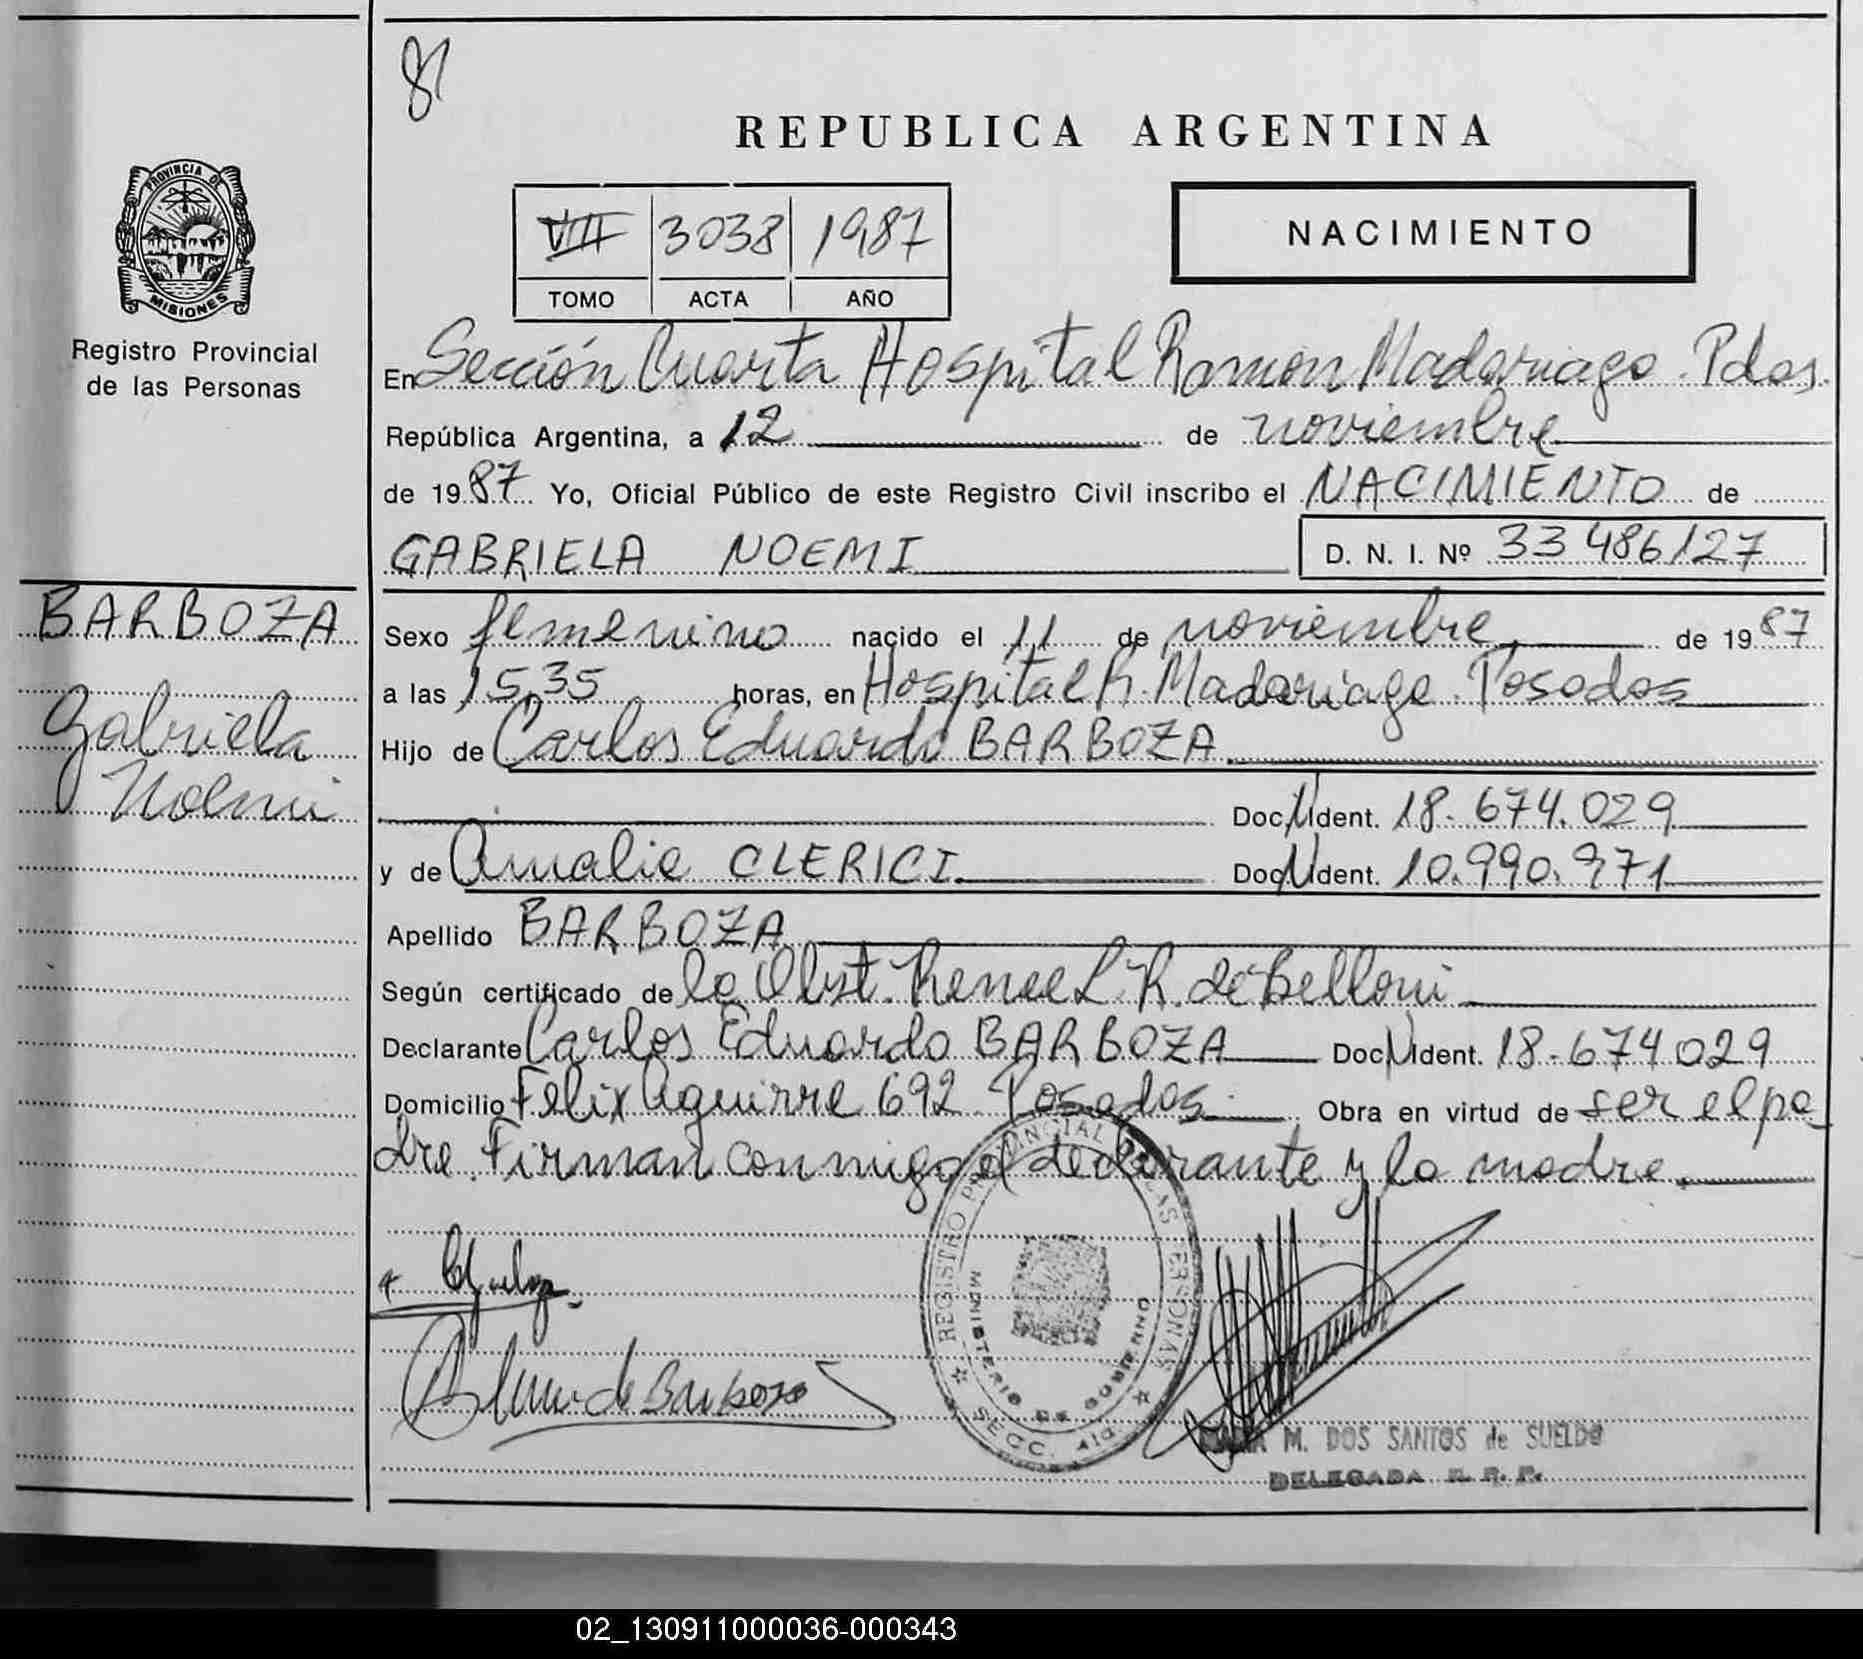 81
REPUBLICA ARGENTINA
PROVINCIA DE
MISIONES
Registro Provincial
de las Personas
VIII 3038 1987
TOMO ACTA AÑO
NACIMIENTO
En Sección Cuarta Hospital Ramon Madariaga. Pdas.
República Argentina, a 12 de noviembre
de 1987 Yo, Oficial Público de este Registro Civil inscribo el NACIMIENTO de
GABRIELA NOEMI D. N. I. Nº 33 486127
BARBOZA
Gabriela
Noemi
Sexo femenino nacido el 11 de noviembre de 1987
a las 15,35 horas, en Hospital R. Madariaga. Posadas
Hijo de Carlos Eduardo BARBOZA
Doc. N Ident. 18.674.029
y de Amalia CLERICI Doc. N Ident. 10.990.971
Apellido BARBOZA
Según certificado de la Obst. Renee L. R. de Belloni
Declarante Carlos Eduardo BARBOZA Doc. N Ident. 18.674029
Domicilio Felix Aguirre 692 Posadas Obra en virtud de ser el pa
dre. Firman conmigo el declarante y la madre.
REGISTRO PROVINCIAL DE LAS PERSONAS
MINISTERIO DE GOBIERNO
SECC. 4ta.
de Barboza
M. DOS SANTOS de SUELDO
DELEGADA R. P. P.
02_130911000036-000343